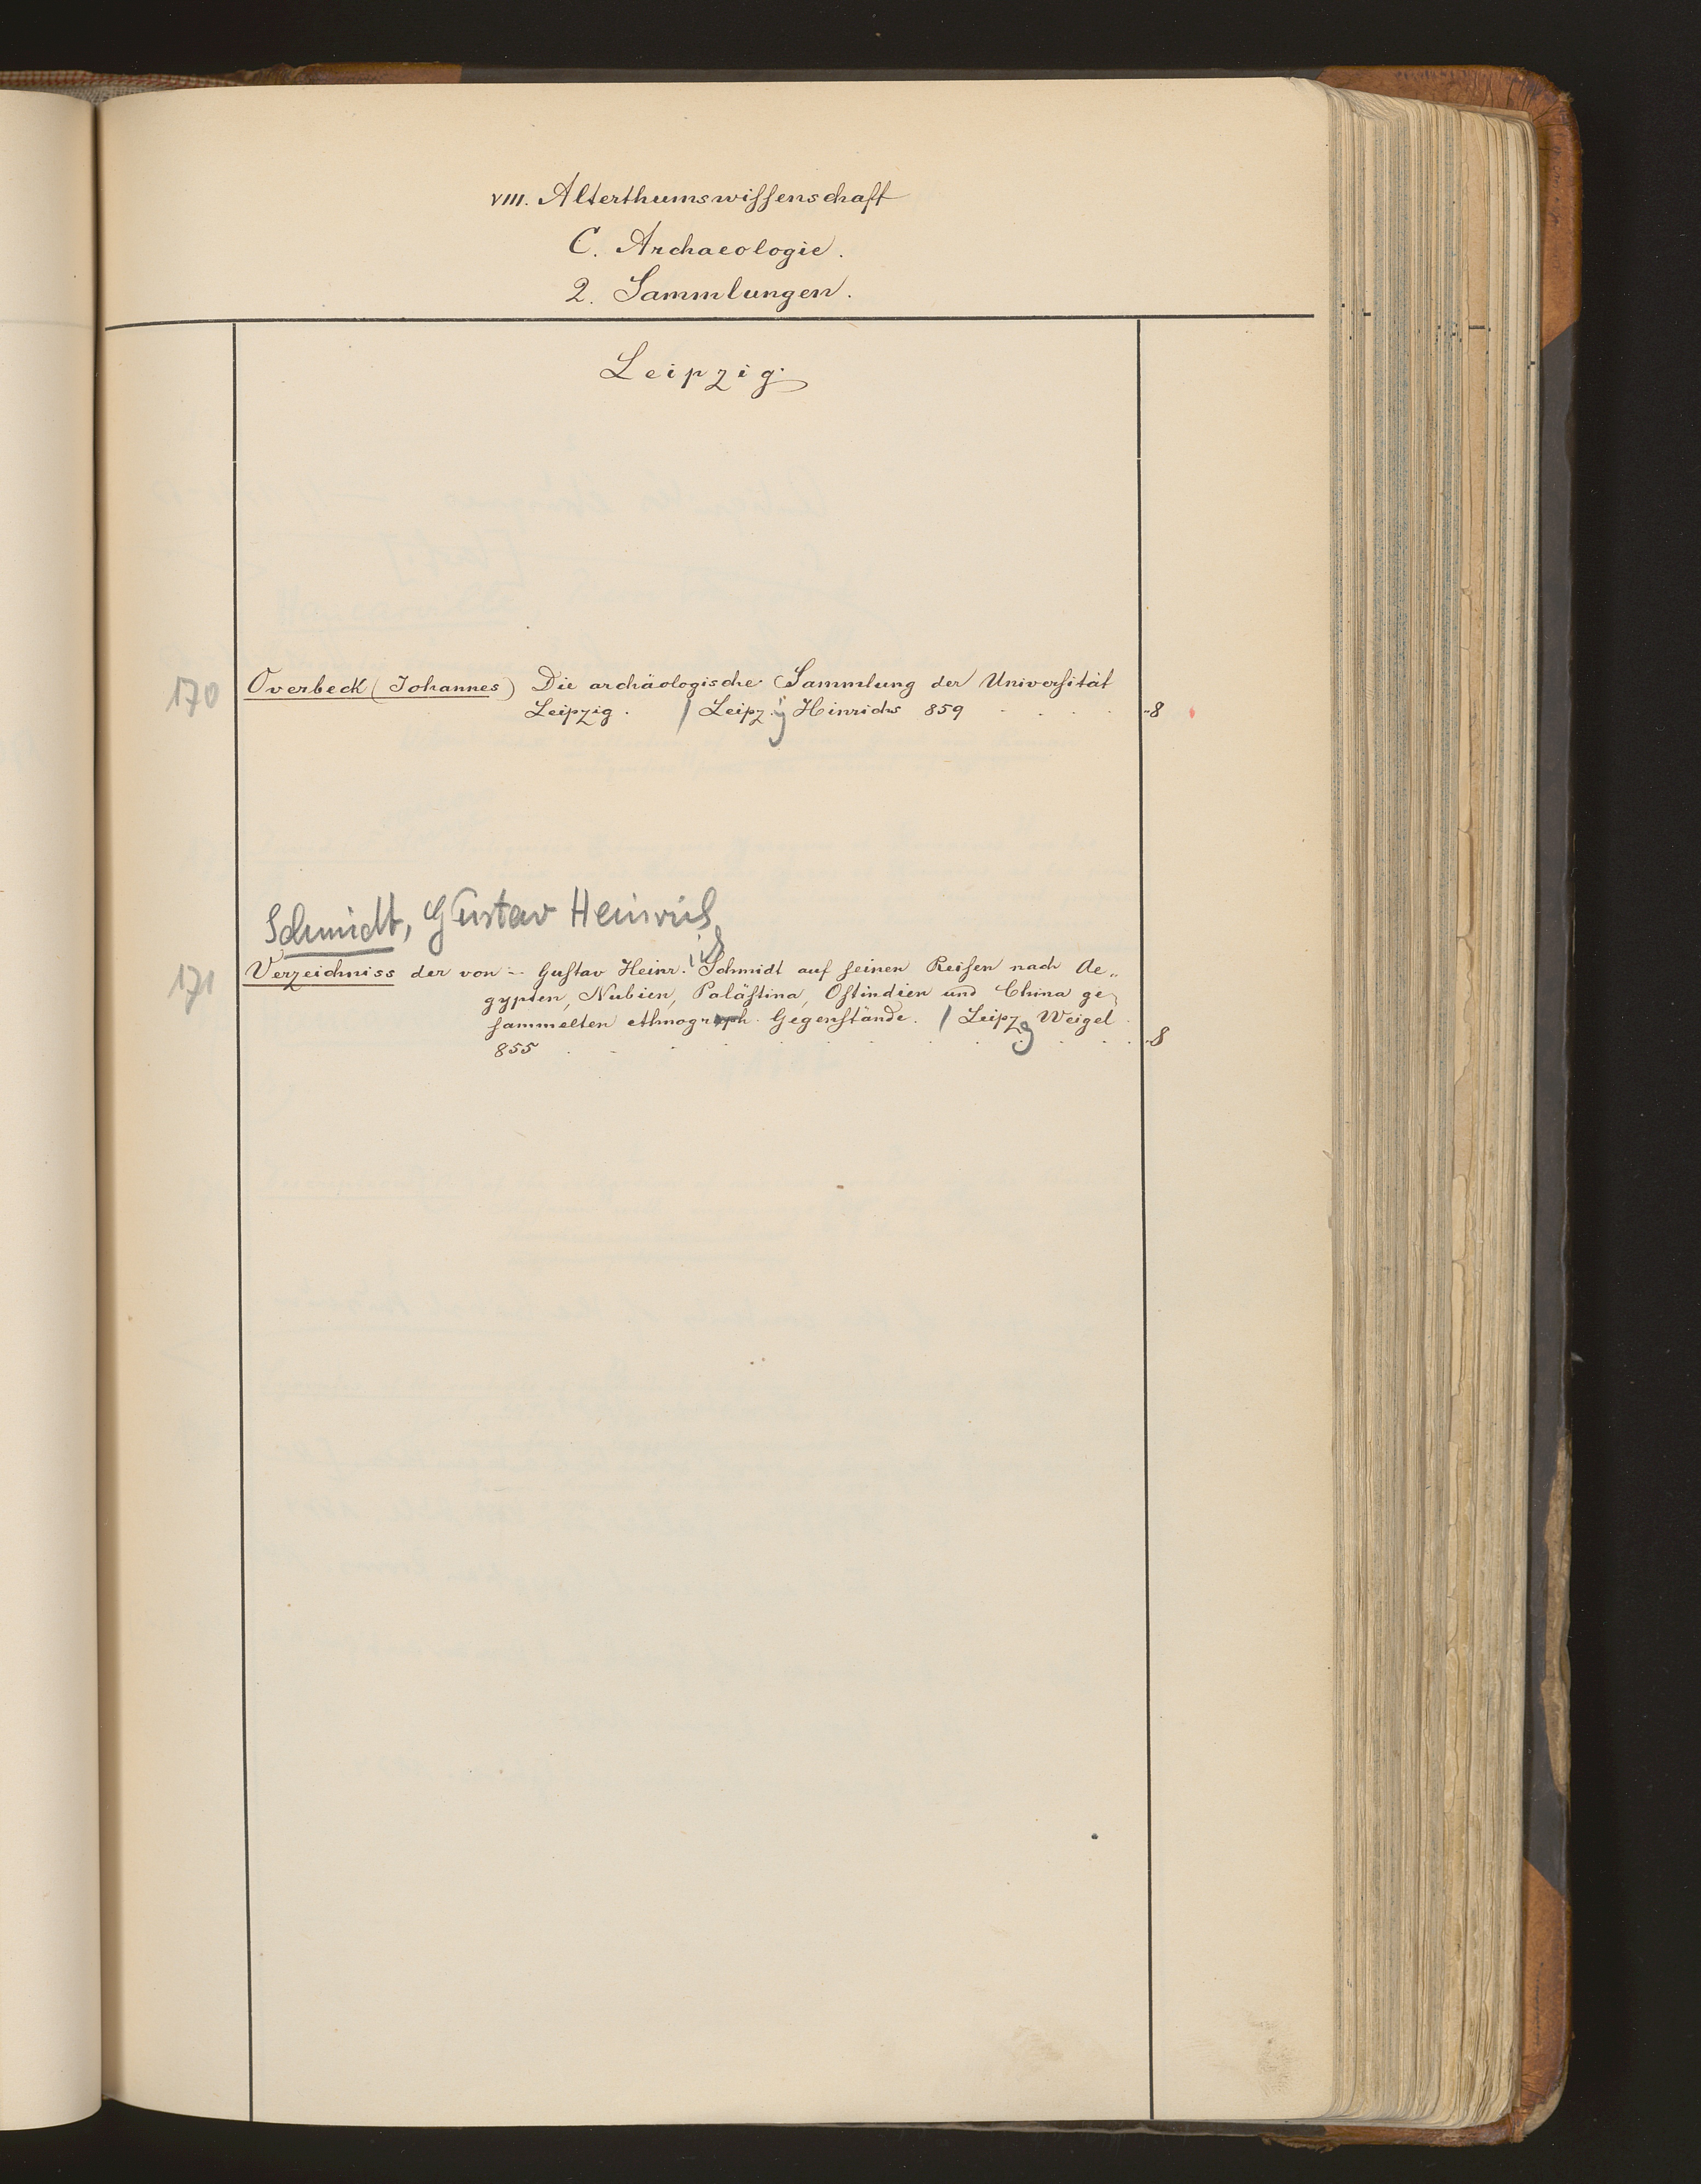 VIII. Alterthumswissenschaft
C. Archaeologie.
2. Sammlungen.
Leipzig.
170 Overbeck (Johannes) Die archäologische Sammlung der Universität
Leipzig. / Leipz.g Hinrichs 859 . . . . -8
Schmidt, Gustav Heinrich
171 Verzeichniss der von - Gustav Heinr. ich Schmidt auf seinen Reisen nach Ae-
gypten, Nubien, Palästina, Ostindien und China ge-
sammelten ethnograph. Gegenstände. / Leipzg Weigel
855 . . . . . . . . . . -8